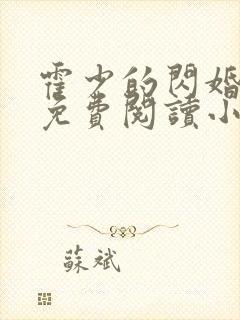 霍少的閃婚
免費閱讀小
蘇斌